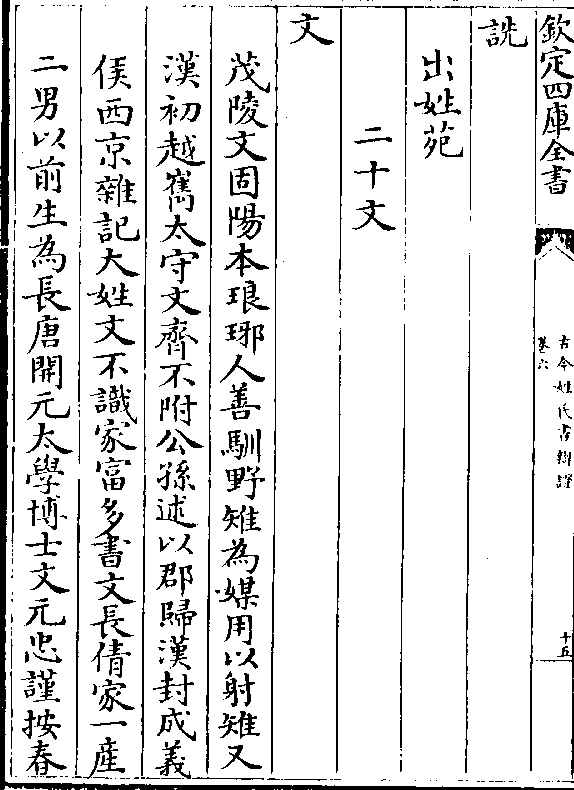 欽定四庫全書
古今姓氏書辯證
卷六
十五
詵
出姓苑
二十文
文
茂陵文固陽本琅琊人善馴野雉為媒用以射雉又
漢初越巂太守文齊不附公孫述以郡歸漢封成義
侯西京雜記大姓文不識家富多書文長倩家一產
二男以前生為長唐開元太學博士文元忠謹按春